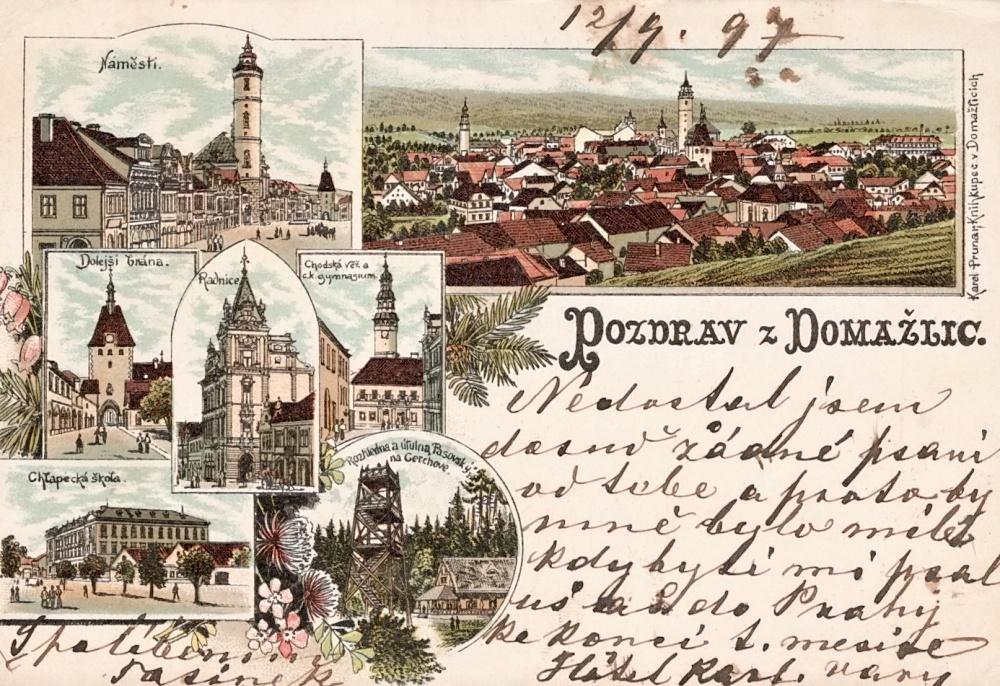 12/9. 97
Náměstí.
Karel Prunar, Knihkupec v Domažlicích
Dolejší brána.
Radnice
Chodská věž a
c.k. gymnasium.
POZDRAV z DOMAŽLIC.
Rozhledna a útulna Pasovský
na Čerchově.
Chlapecká škola.
Nedostal jsem
dosud žádné psaní
od tebe a proto by
mně bylo milé
kdyby si mi psal
už až do Prahy
ke konci t. měsíce
Hôtel Karl. vary